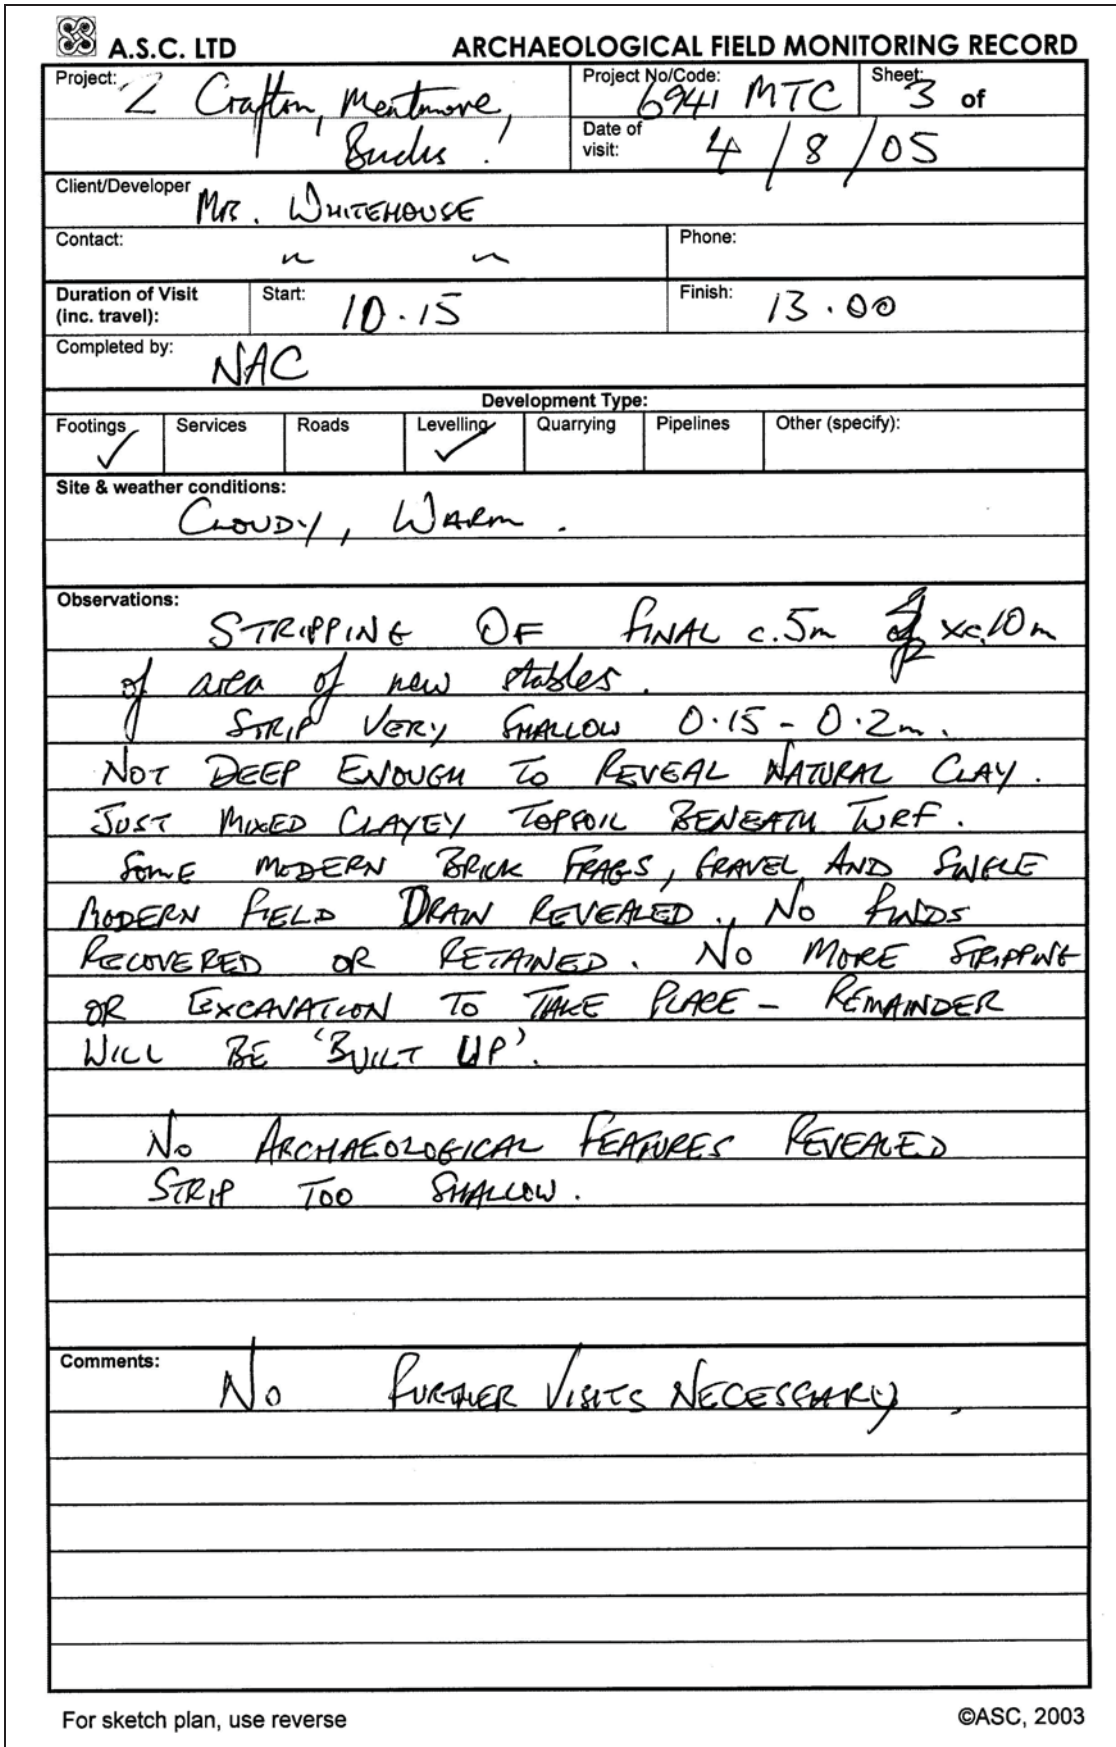 A.S.C. LTD
ARCHAEOLOGICAL FIELD MONITORING RECORD
Project: 2 Crafton, Mentmore,
Bucks.
Project No/Code: 6941 MTC
Sheet: 3 of
Date of visit: 4/8/05
Client/Developer MR. WHITEHOUSE
Contact: " "
Phone:
Duration of Visit (inc. travel):
Start: 10.15
Finish: 13.00
Completed by: NAC
Development Type:
Footings ✓
Services
Roads
Levelling ✓
Quarrying
Pipelines
Other (specify):
Site & weather conditions:
CLOUDY, WARM.
Observations:
STRIPPING OF FINAL c.5m x c.10m
of area of new stables.
STRIP VERY SHALLOW 0.15 - 0.2m.
NOT DEEP ENOUGH TO REVEAL NATURAL CLAY.
JUST MIXED CLAYEY TOPSOIL BENEATH TURF.
SOME MODERN BRICK FRAGS, GRAVEL AND SINGLE
MODERN FIELD DRAIN REVEALED. NO FINDS
RECOVERED OR RETAINED. NO MORE STRIPPING
OR EXCAVATION TO TAKE PLACE - REMAINDER
WILL BE 'BUILT UP'.
NO ARCHAEOLOGICAL FEATURES REVEALED
STRIP TOO SHALLOW.
Comments:
NO FURTHER VISITS NECESSARY.
For sketch plan, use reverse
©ASC, 2003